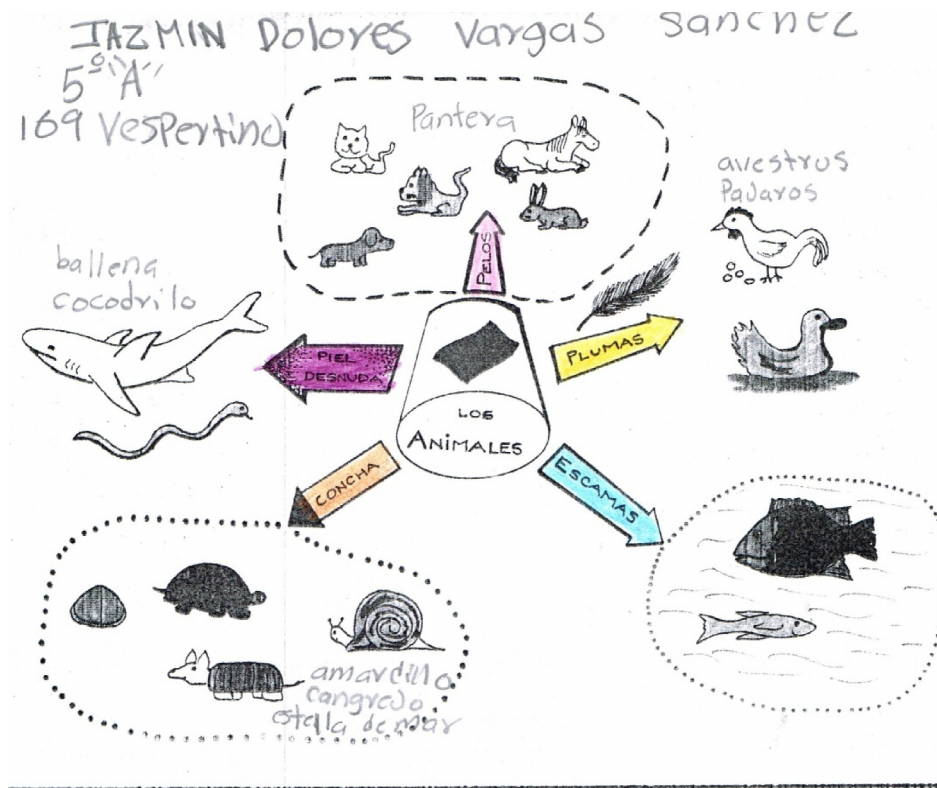 JAZMIN Dolores Vargas Sanchez
5º "A"
169 Vespertino
Pantera
PELOS
avestrus
Pajaros
PLUMAS
ballena
cocodrilo
PIEL
DESNUDA
LOS
ANIMALES
CONCHA
ESCAMAS
amardillo
cangrejo
estella de mar